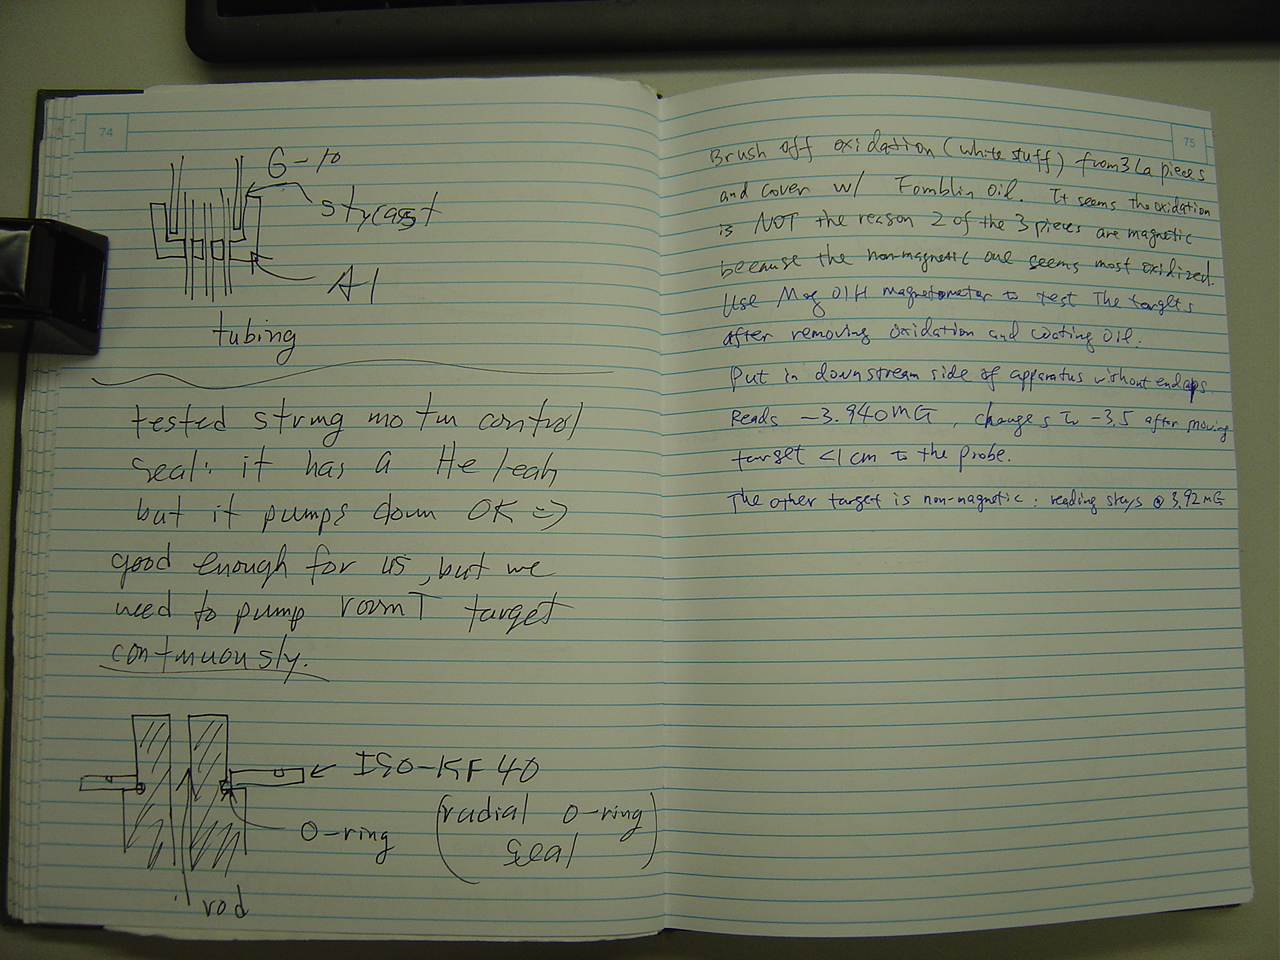 74
G-10
stycast
Al
tubing
tested string motor control
seal: it has a He leak
but it pumps down OK =>
good enough for us, but we
need to pump room T target
continuously.
ISO-KF 40
O-ring
(radial O-ring
seal)
rod
75
Brush off oxidation (white stuff) from 3 La pieces
and cover w/ Fomblin Oil. It seems the oxidation
is NOT the reason 2 of the 3 pieces are magnetic
because the non-magnetic one seems most oxidized.
Use Mag 01H magnetometer to test the targets
after removing oxidation and coating oil.
Put in downstream side of apparatus without endcaps
Reads -3.940 mG, changes to -3.5 after moving
target <1 cm to the probe.
The other target is non-magnetic: reading stays @ 3.92 mG